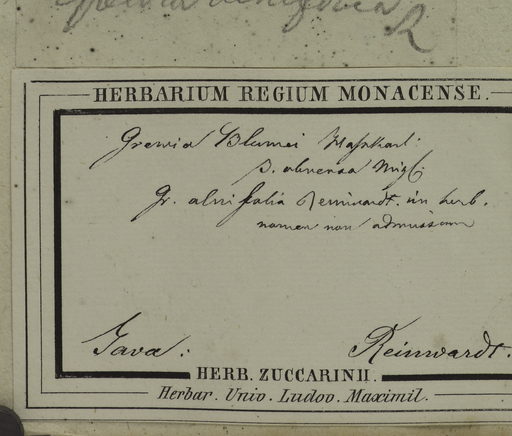 Grewia alnifolia
R
HERBARIUM REGIUM MONACENSE.
Grewia Blumei Hasskarl.
β. abversa Miq.
Gr. alnifolia Reinwardt. in herb.
nomen non admissum
Java.
Reinwardt.
HERB. ZUCCARINII.
Herbar. Univ. Ludov. Maximil.